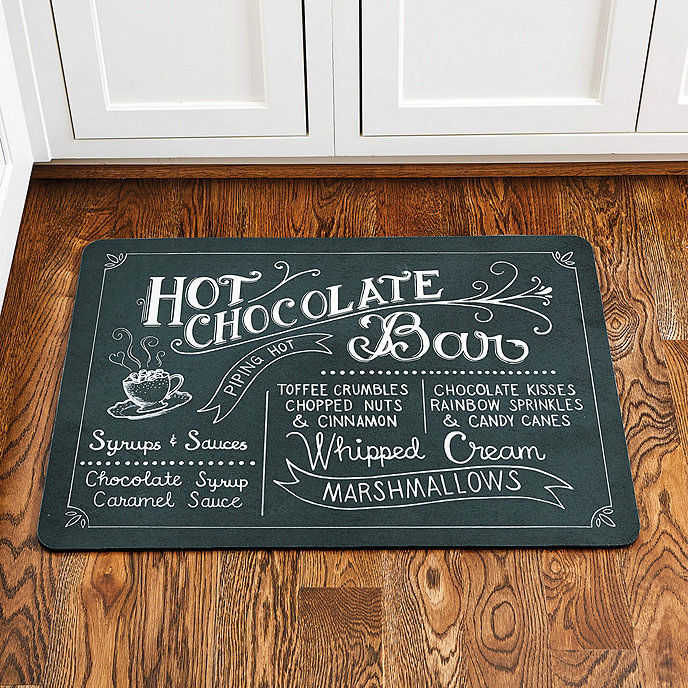 HOT
CHOCOLATE
Bar
PIPING HOT
Syrups & Sauces
Chocolate Syrup
Caramel Sauce
TOFFEE CRUMBLES
CHOPPED NUTS
& CINNAMON
CHOCOLATE KISSES
RAINBOW SPRINKLES
& CANDY CANES
Whipped Cream
MARSHMALLOWS